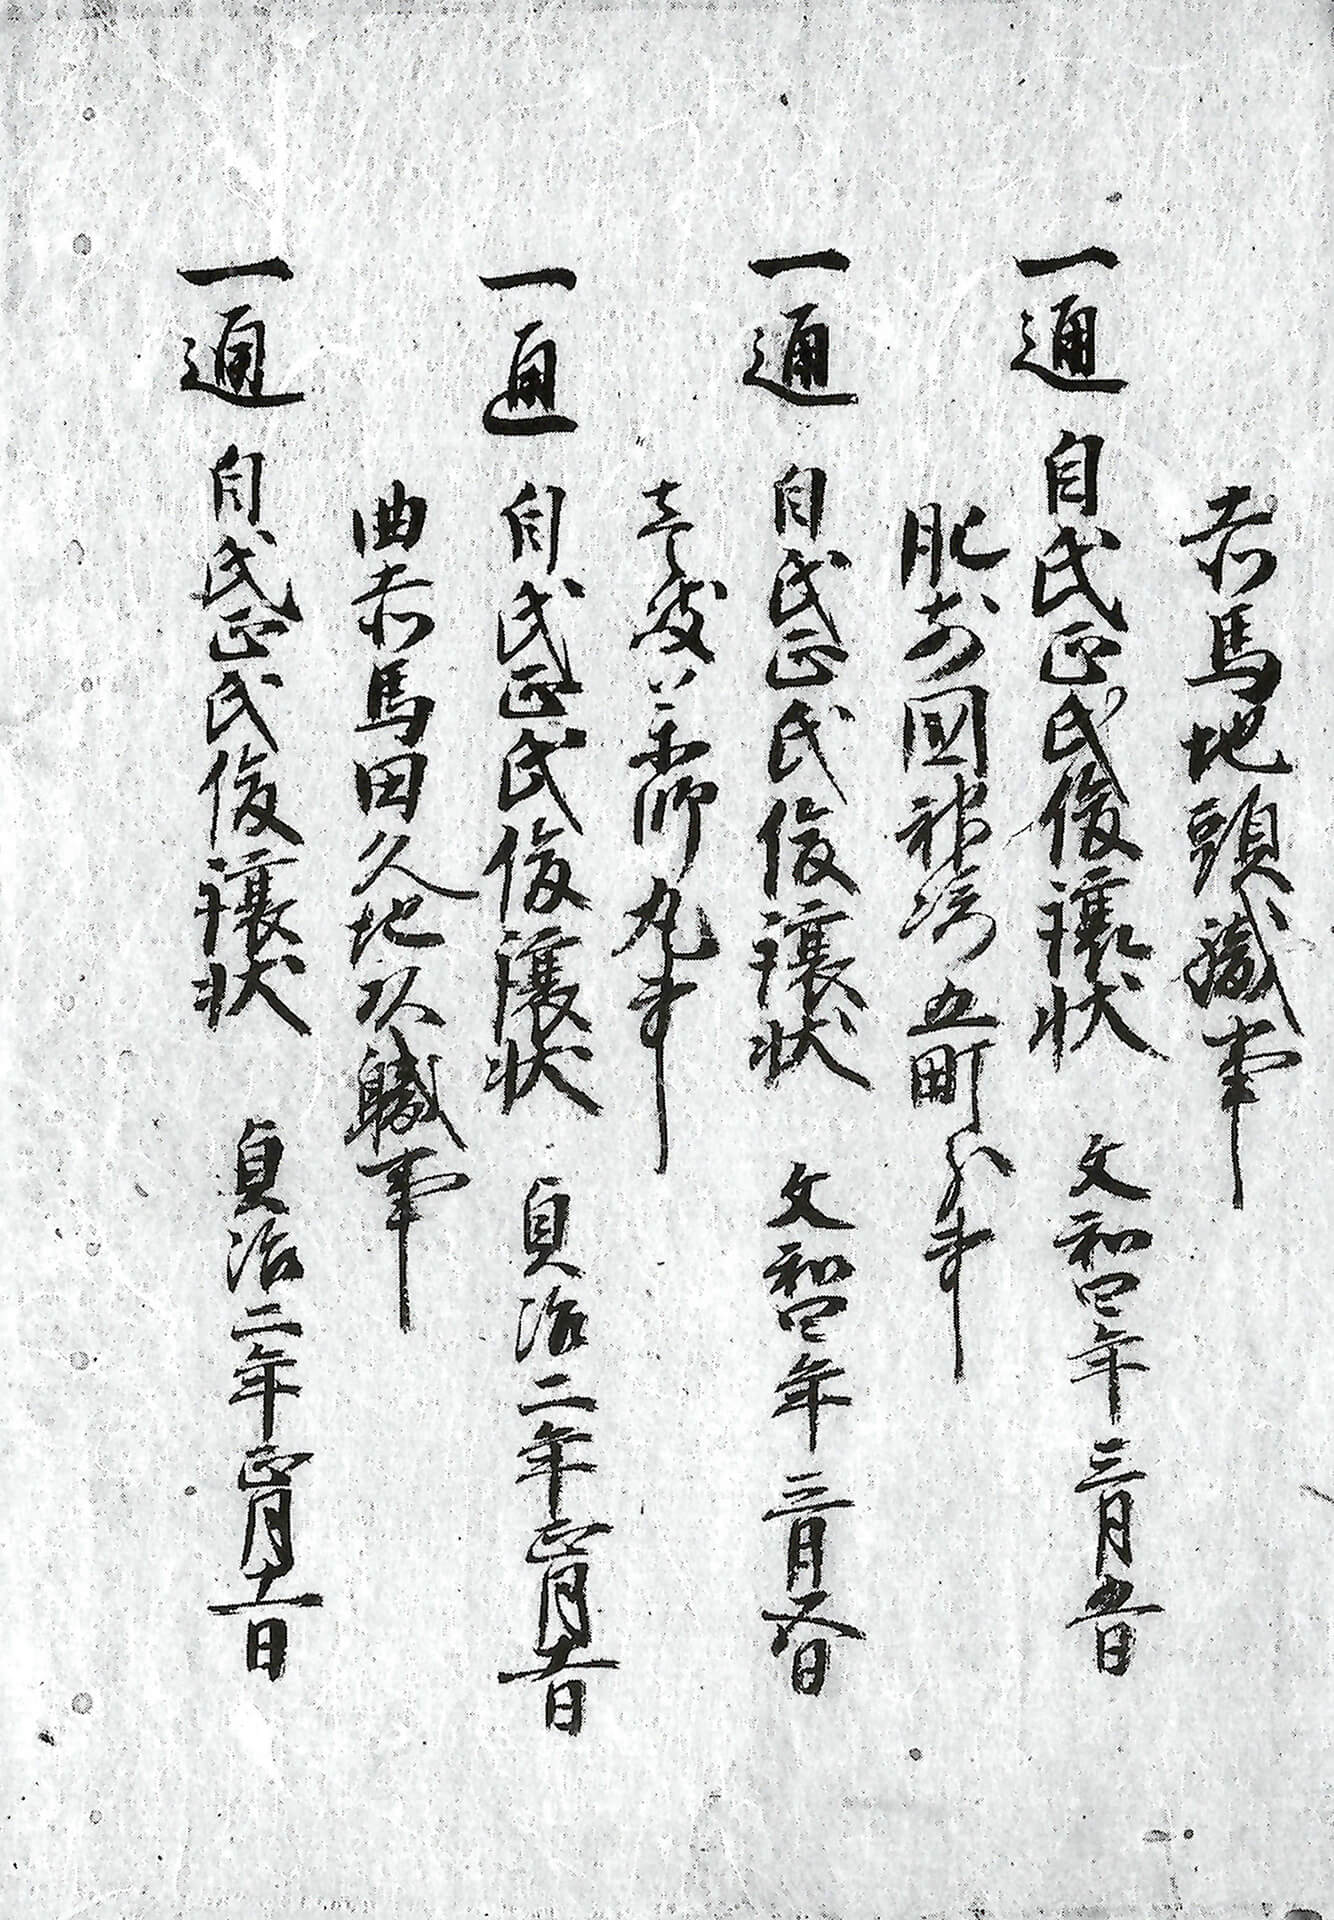 赤馬地頭職事
一通 自氏正氏俊譲状 文和四年三月五日
肥前國神崎五町分事
一通 自氏正氏俊譲状 文和四年三月六日
薬師丸事
一通 自氏正氏俊譲状 貞治二年正月十一日
曲赤馬田久地頭職事
一通 自氏正氏俊譲状 貞治二年正月十一日